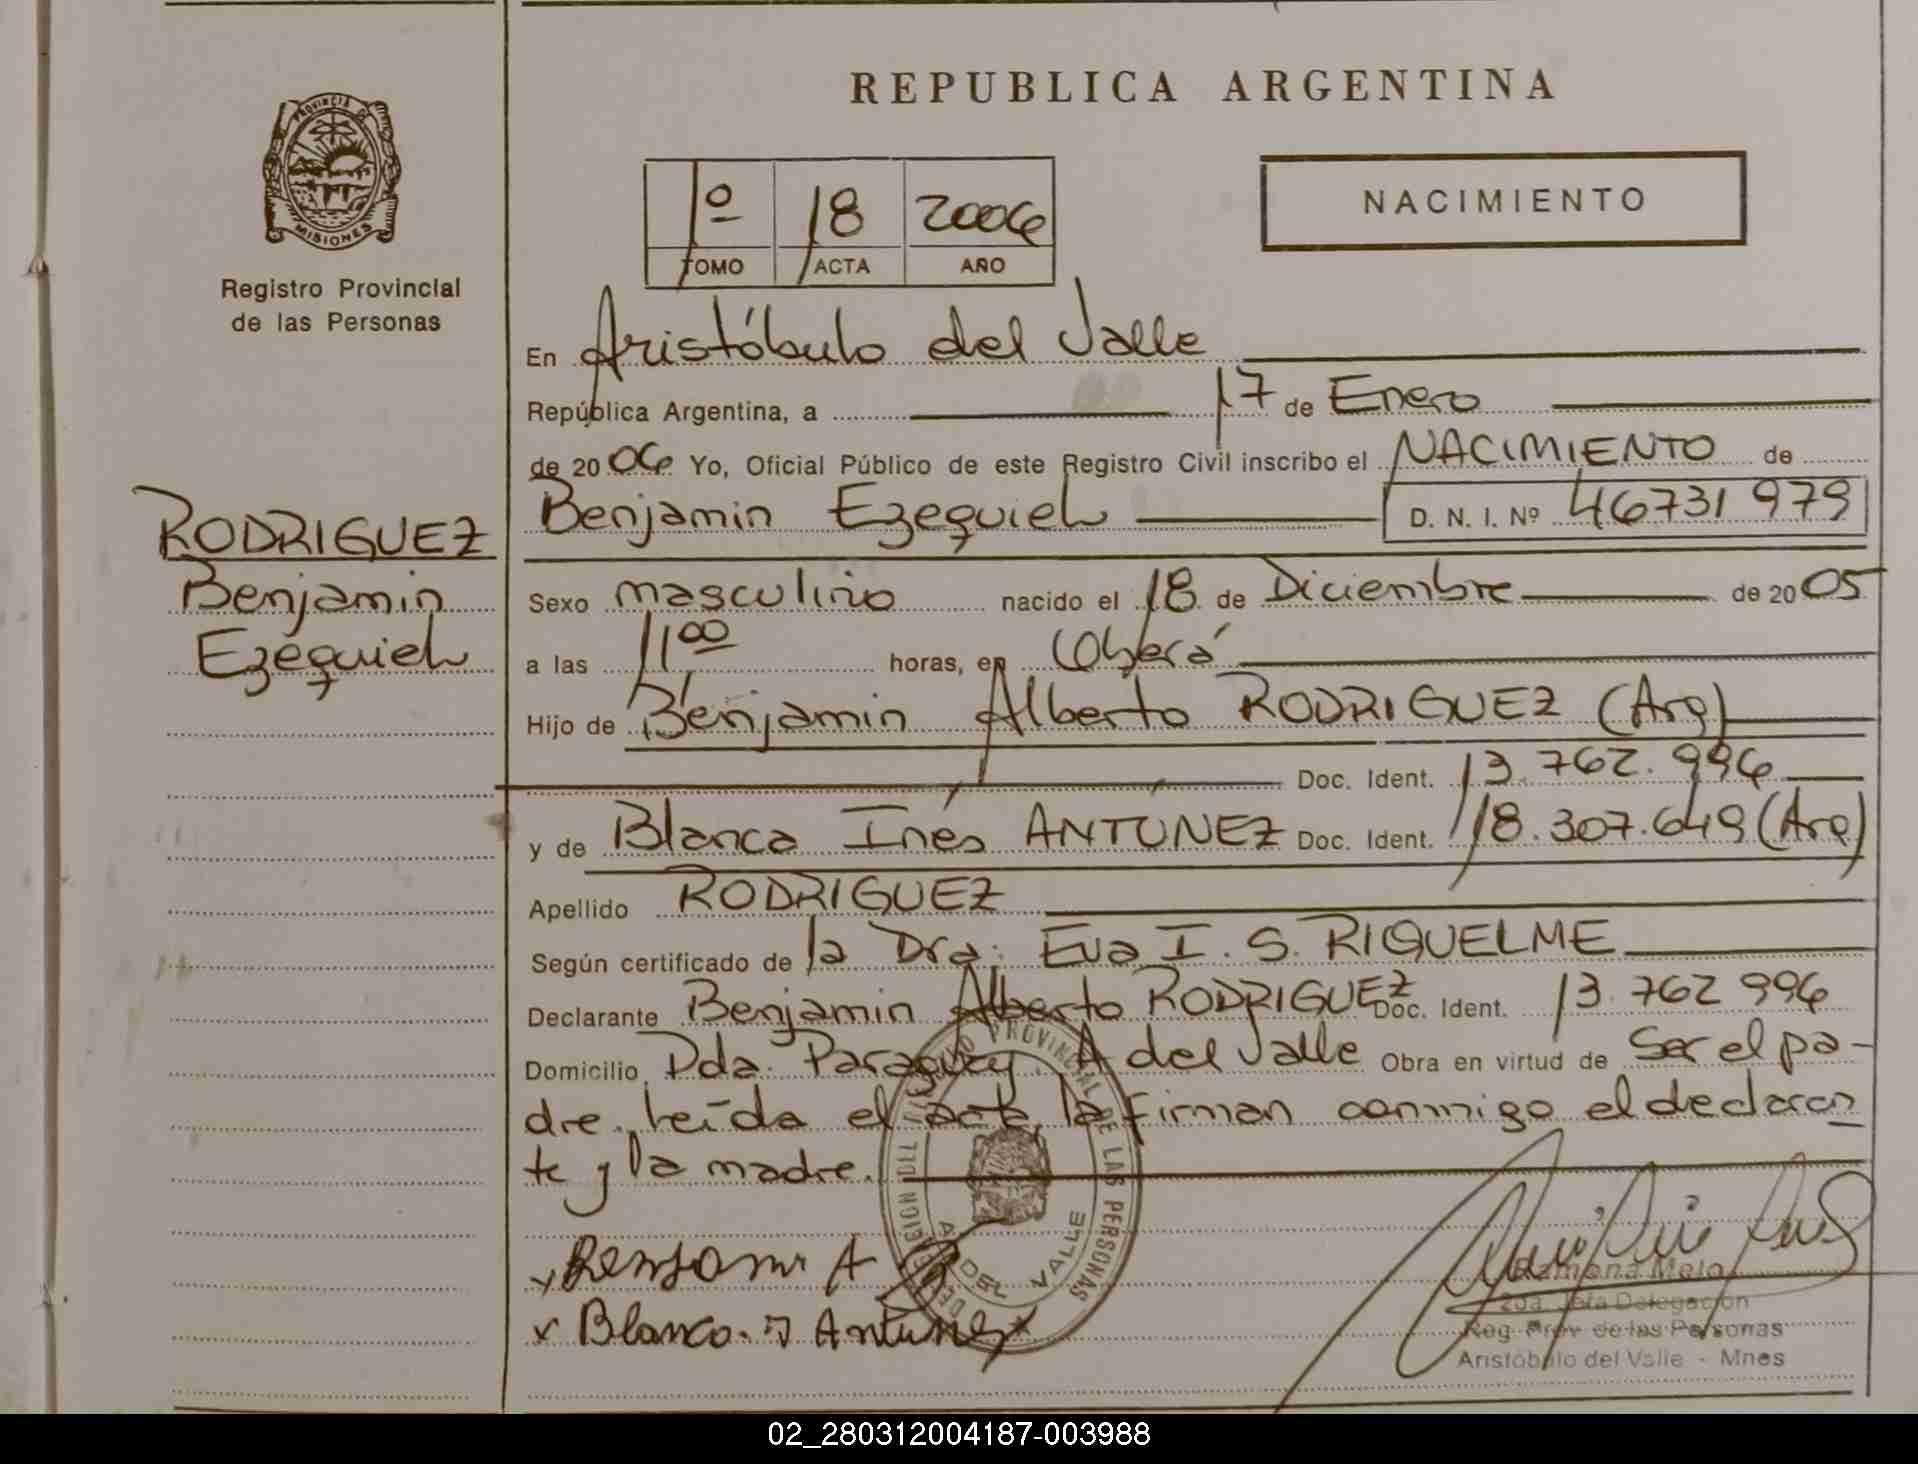 REPUBLICA ARGENTINA
PROVINCIA DE
MISIONES
Registro Provincial
de las Personas
1º 18 2006
TOMO ACTA AÑO
NACIMIENTO
En Aristóbulo del Valle
República Argentina, a 17 de Enero
de 20 06 Yo, Oficial Público de este Registro Civil inscribo el NACIMIENTO de
Benjamin Ezequiel D. N. I. Nº 46731979
RODRIGUEZ
Benjamin
Ezequiel
Sexo masculino nacido el 18 de Diciembre de 20 05
a las 11 00 horas, en Oberá
Hijo de Benjamin Alberto RODRIGUEZ (Arg)
Doc. Ident. 13.762.996
y de Blanca Inés ANTÚNEZ Doc. Ident. 18.307.649 (Arg)
Apellido RODRIGUEZ
Según certificado de la Dra. Eva I. S. RIQUELME
Declarante Benjamin Alberto RODRIGUEZ Doc. Ident. 13.762 996
Domicilio Pda. Paraguay. A del Valle Obra en virtud de Ser el pa-
dre. Leída el acta, la firman conmigo el declaran
te y la madre.
PROVINCIAL DE LAS PERSONAS
A. DEL VALLE
x Benjami A
x Blanca. I Antunez
Ramona Melo
2da. Jefa Delegación
Reg. Prov. de las Personas
Aristóbulo del Valle - Mnes
02_280312004187-003988